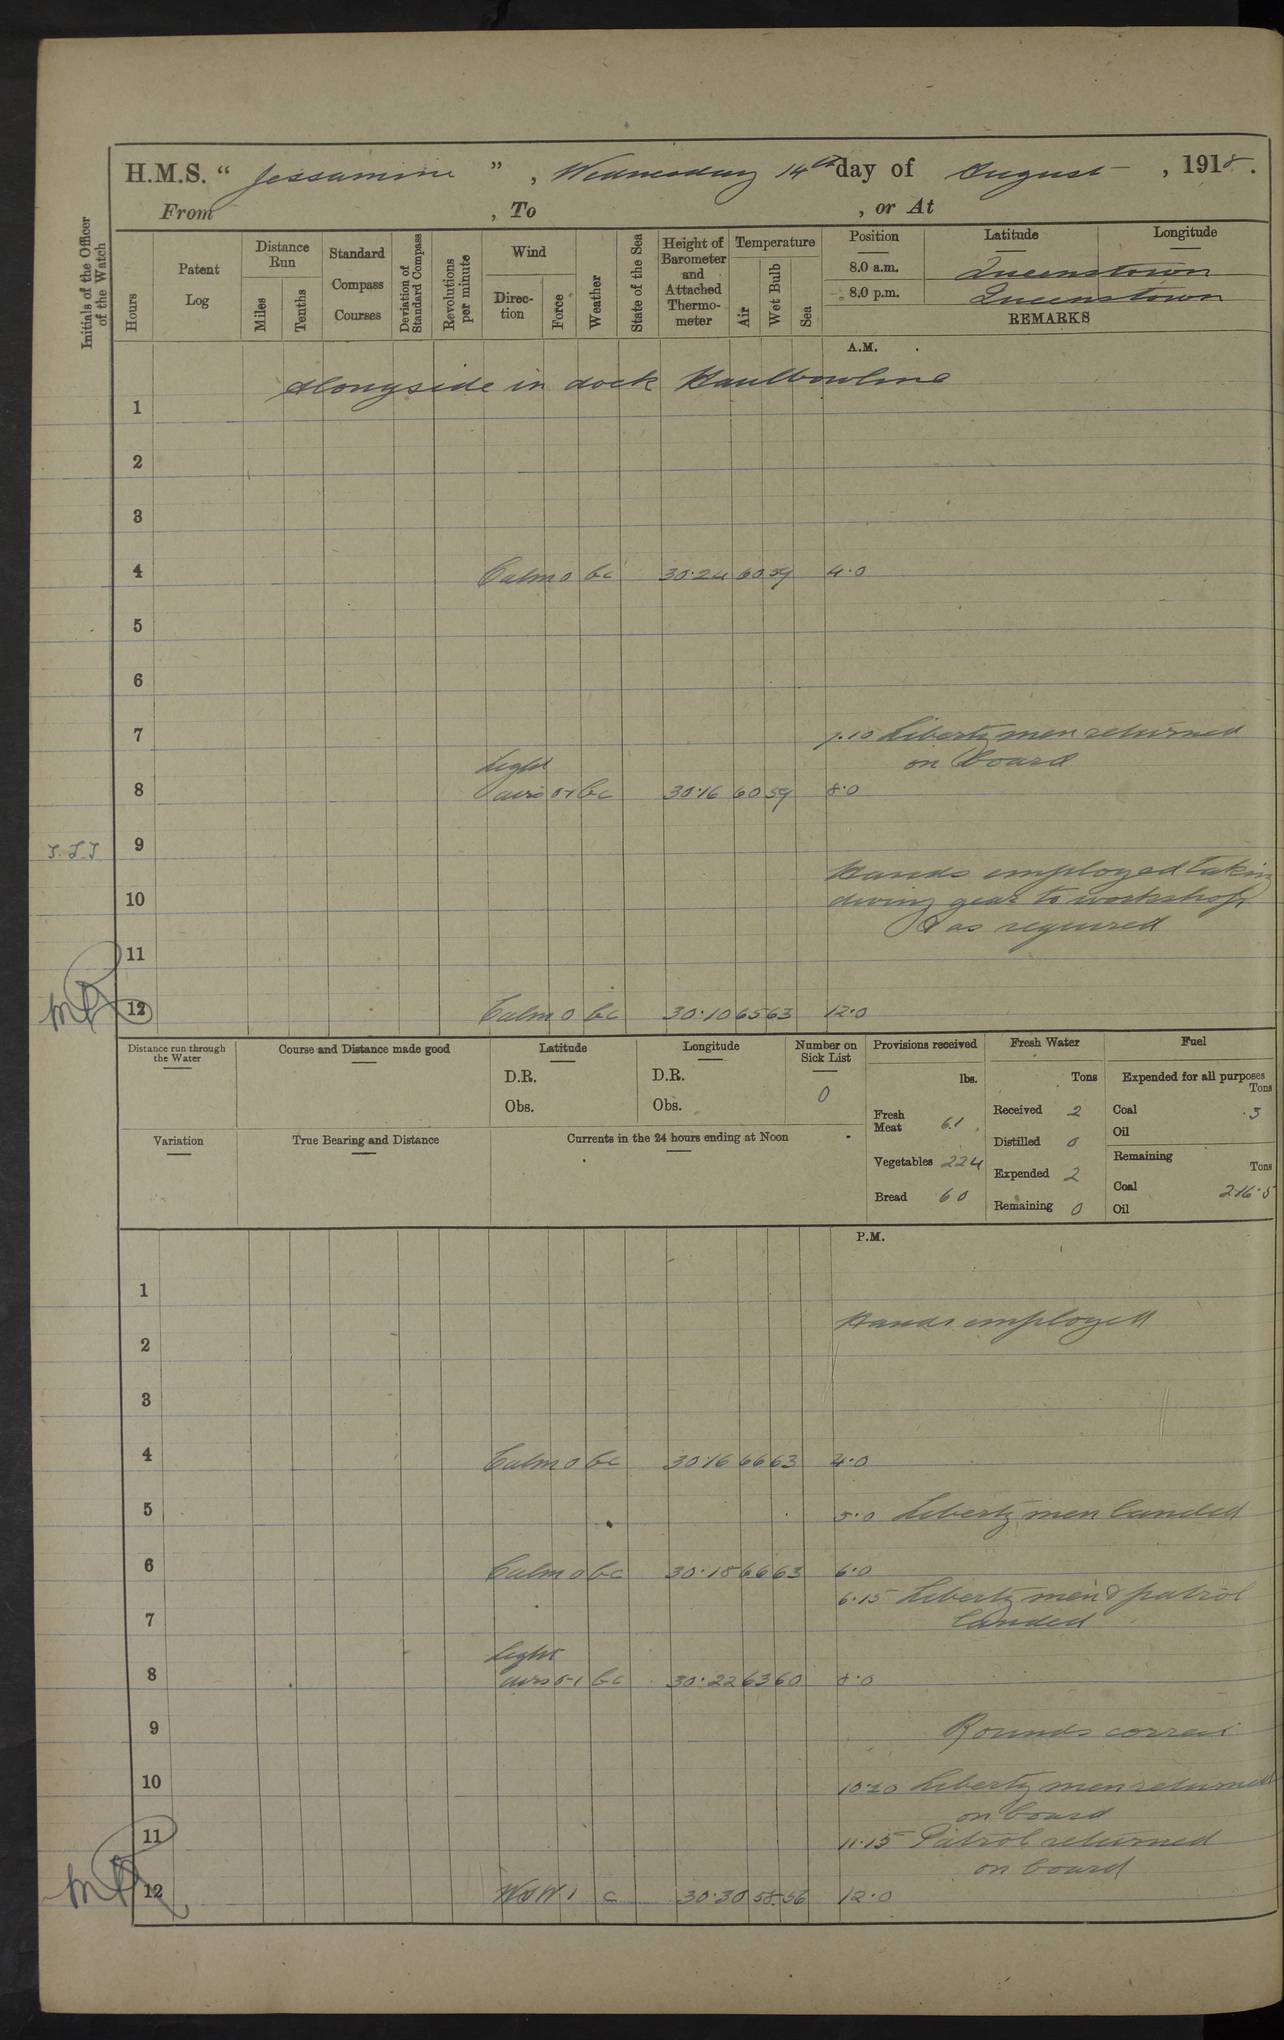 H.M.S. “ Jessamine ” , Wednesday 14th day of August , 1918.
From , To , or At
Initials of the Officer of the Watch
Hours
Patent Log
Distance Run
Miles
Tenths
Standard Compass Courses
Deviation of Standard Compass
Revolutions per minute
Wind
Direc-tion
Force
Weather
State of the Sea
Height of Barometer and Attached Thermo-meter
Temperature
Air
Wet Bulb
Sea
Position Latitude Longitude
8.0 a.m. Queenstown
8.0 p.m. Queenstown
REMARKS
A.M.
Alongside in dock Haulbowline
1
2
3
4 Calm 0 bc 30.24 60 59 4.0
5
6
7 7.10 Liberty men returned
on board
Light
8 airs 0-1 bc 30.16 60 59 8.0
9
Hands employed taking
10 diving gear to workshop
& as required
11
12 Calm 0 bc 30.10 65 63 12.0
Distance run through the Water
Course and Distance made good
Latitude
D.R.
Obs.
Longitude
D.R.
Obs.
Number on Sick List
0
Provisions received
lbs.
Fresh Meat 61
Vegetables 224
Bread 60
Fresh Water
Tons
Received 2
Distilled 0
Expended 2
Remaining 0
Fuel
Expended for all purposes
Tons
Coal .3
Oil
Remaining
Tons
Coal 216.5
Oil
Variation
True Bearing and Distance
Currents in the 24 hours ending at Noon
P.M.
1
Hands employed
2
3
4 Calm 0 bc 30.16 66 63 4.0
5 5.0 Liberty men landed
6 Calm 0 bc 30.18 66 63 6.0
6.15 Liberty men & patrol
7 landed
Light
8 airs 0-1 bc 30.22 63 60 8.0
9 Rounds correct
10 10.20 Liberty men returned
on board
11 11.15 Patrol returned
on board
12 WSW 1 c 30.30 58 56 12.0